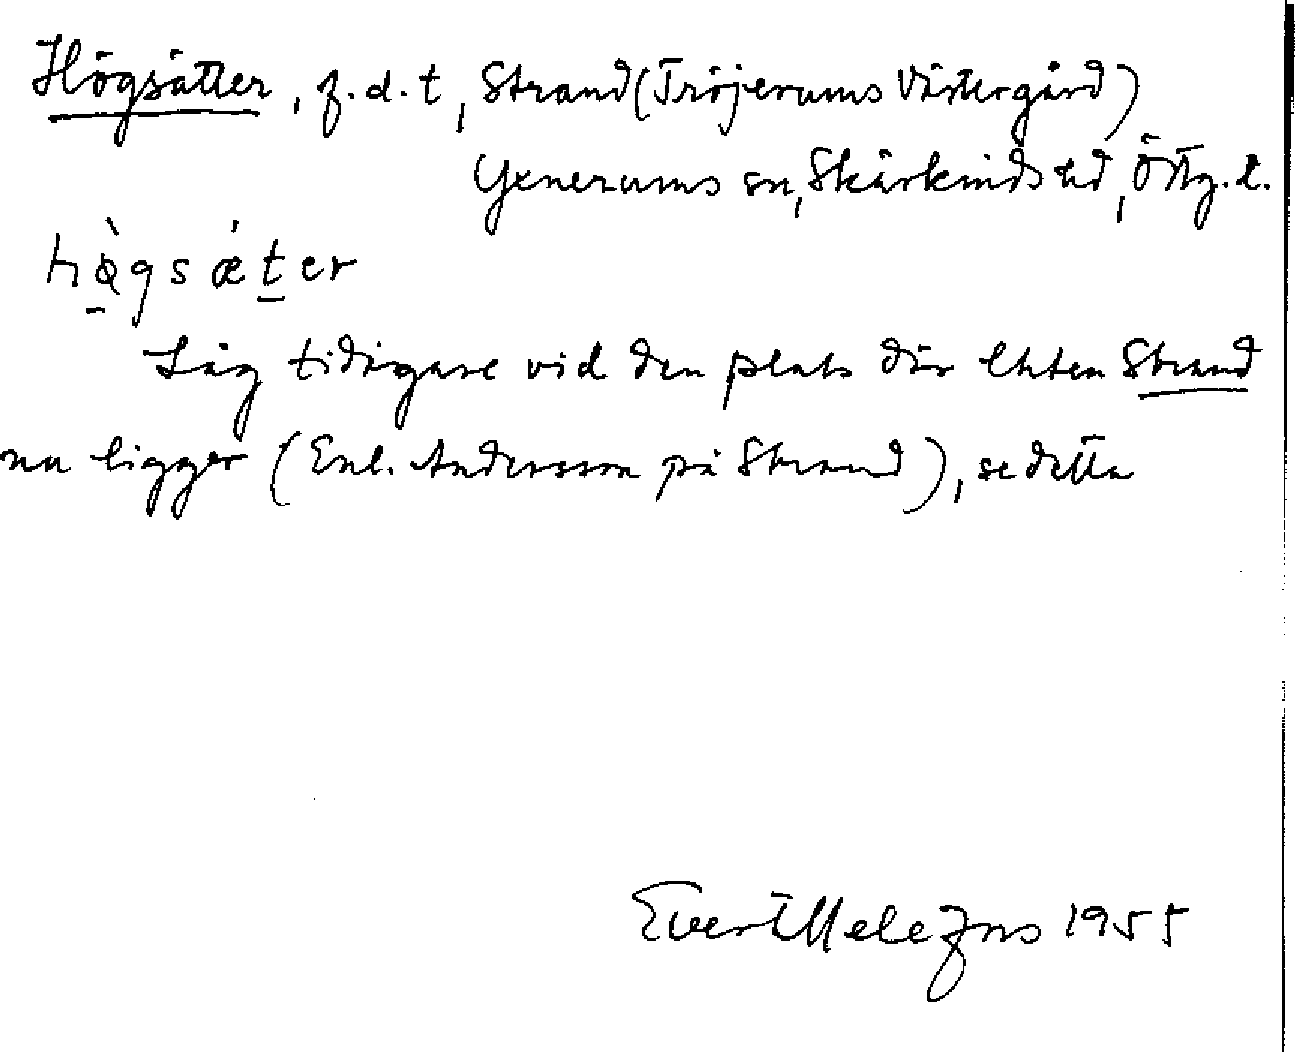 Högsätter, f.d.t, Strand (Tröjerums Västergård)
Yxnerums sn, Skärkinds hd, Östg. l.
Låg tidigare vid den plats där lhten Strand
nu ligger (Enl. Andersson på Strand), se detta
Evert Melefors 1955